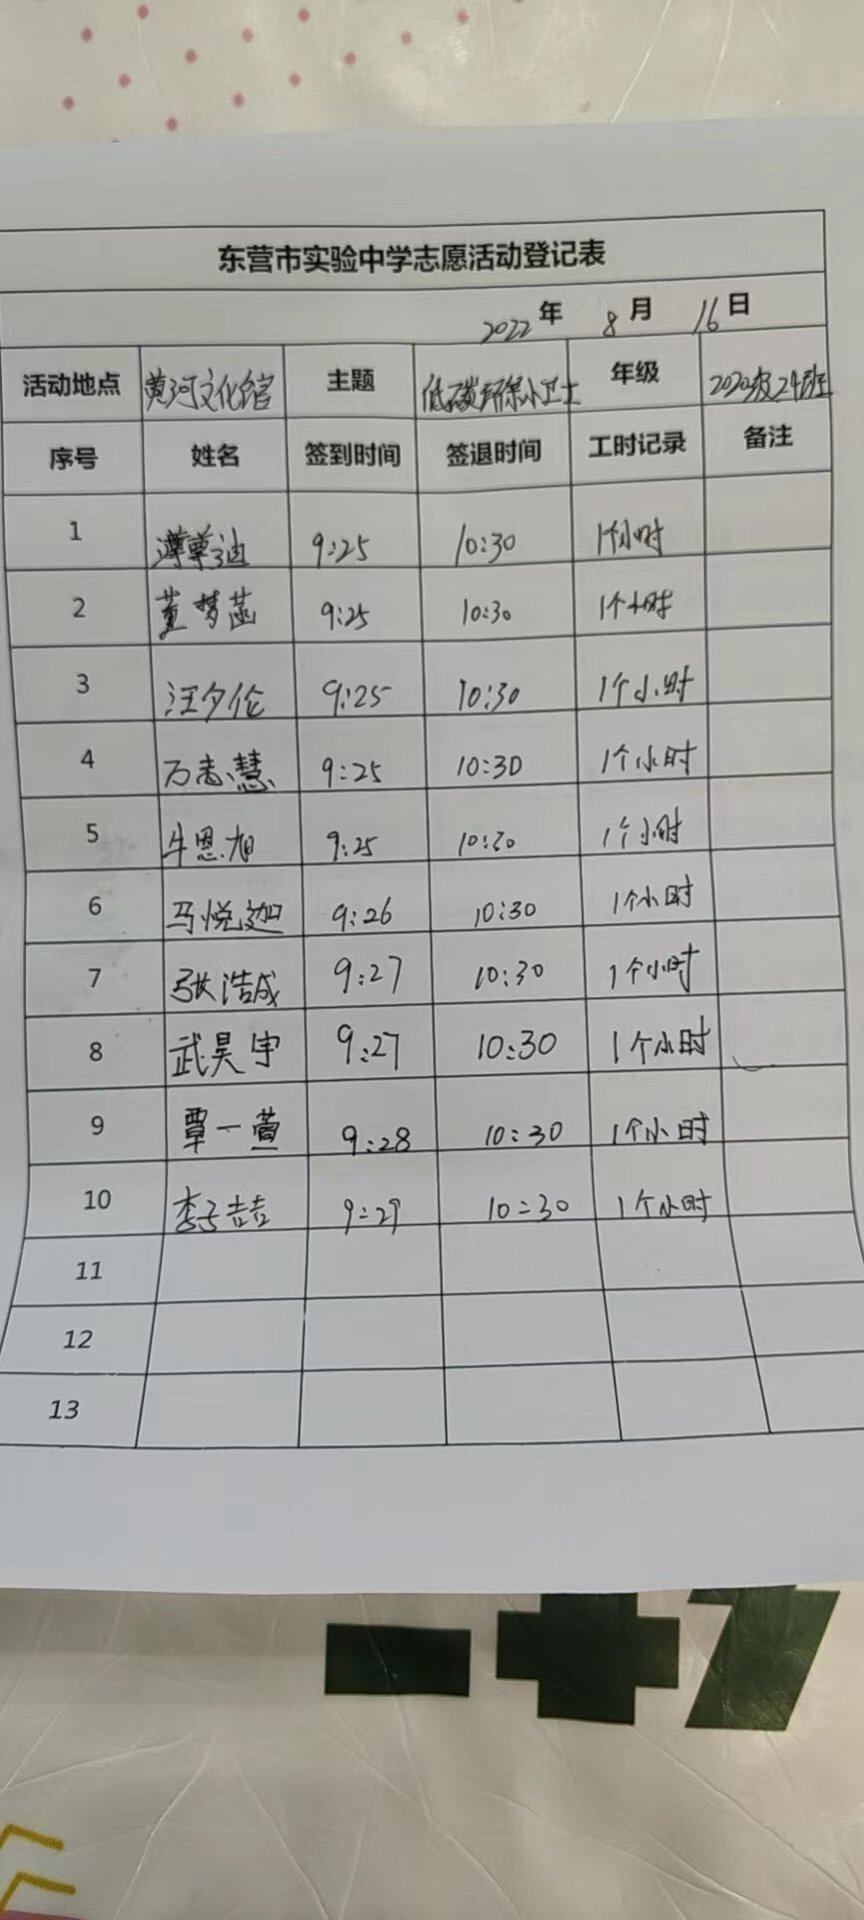 东营市实验中学志愿活动登记表
2022 年 8 月 16 日
活动地点 黄河文化馆 主题 低碳环保小卫士 年级 2020级24班
序号 姓名 签到时间 签退时间 工时记录 备注
1 9:25 10:30 1个小时
2 董梦菡 9:25 10:30 1个小时
3 汪夕伦 9:25 10:30 1个小时
4 万志慧 9:25 10:30 1个小时
5 牛恩旭 9:25 10:30 1个小时
6 马悦迦 9:26 10:30 1个小时
7 张浩成 9:27 10:30 1个小时
8 武昊宇 9:27 10:30 1个小时
9 覃一萱 9:28 10:30 1个小时
10 李子喆 9:29 10:30 1个小时
11
12
13